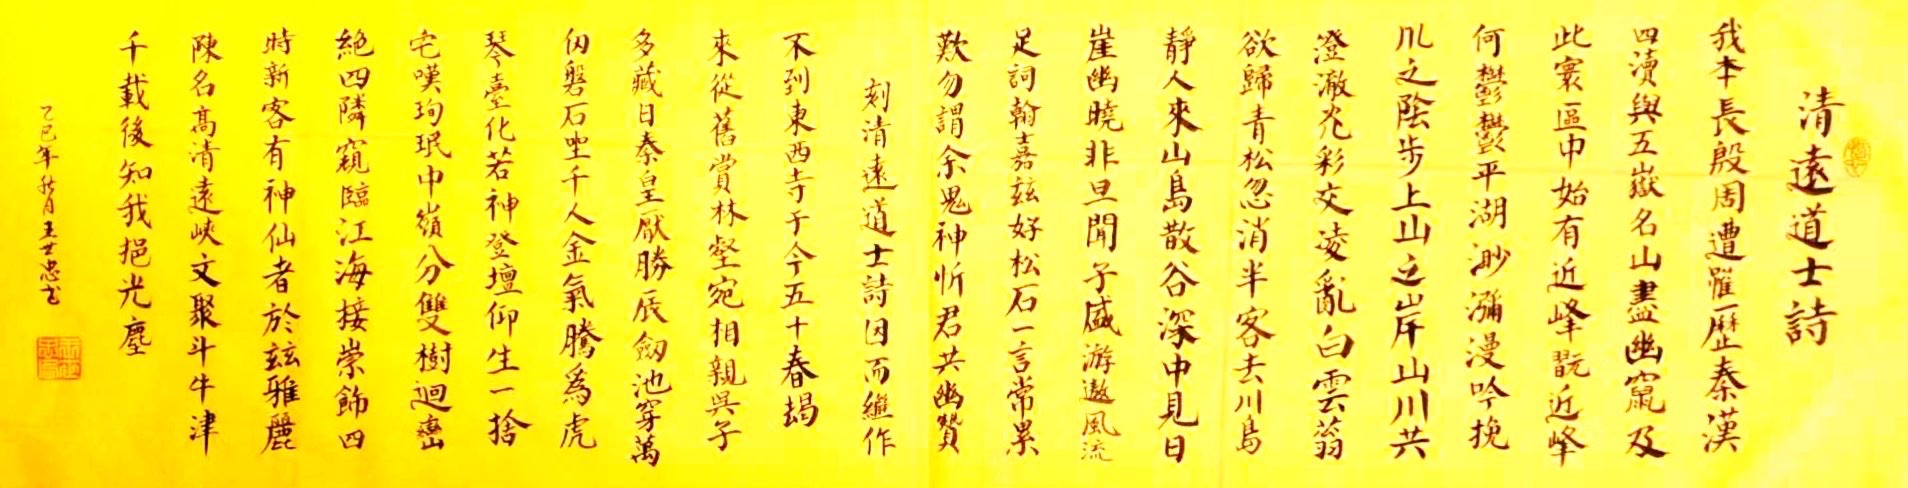 清遠道士詩
我本長殷周遭罹歷秦漢
四瀆與五嶽名山盡幽竄及
此寰區中始有近峰翫近峰
何鬱鬱平湖渺瀰漫吟挽
川之陰步上山之岸山川共
澄澈光彩交凌亂白雲蓊
欲歸青松忽消半客去川島
靜人來山鳥散谷深中見日
崖幽曉非旦聞子盛游遨風流
足詞翰嘉茲好松石一言常累
歎勿謂余鬼神忻君共幽贊
刻清遠道士詩因而繼作
不到東西寺于今五十春朅
來從舊賞林壑宛相親吳子
多藏日秦皇厭勝辰劔池穿萬
仞盤石坐千人金氣騰為虎
琴臺化若神登壇仰生一捨
宅嘆珣珉中嶺分雙樹迴巒
絕四隣窺臨江海接崇飾四
時新客有神仙者於茲雅麗
陳名高清遠峽文聚斗牛津
千載後知我挹光塵
乙巳年秋月王世忠書